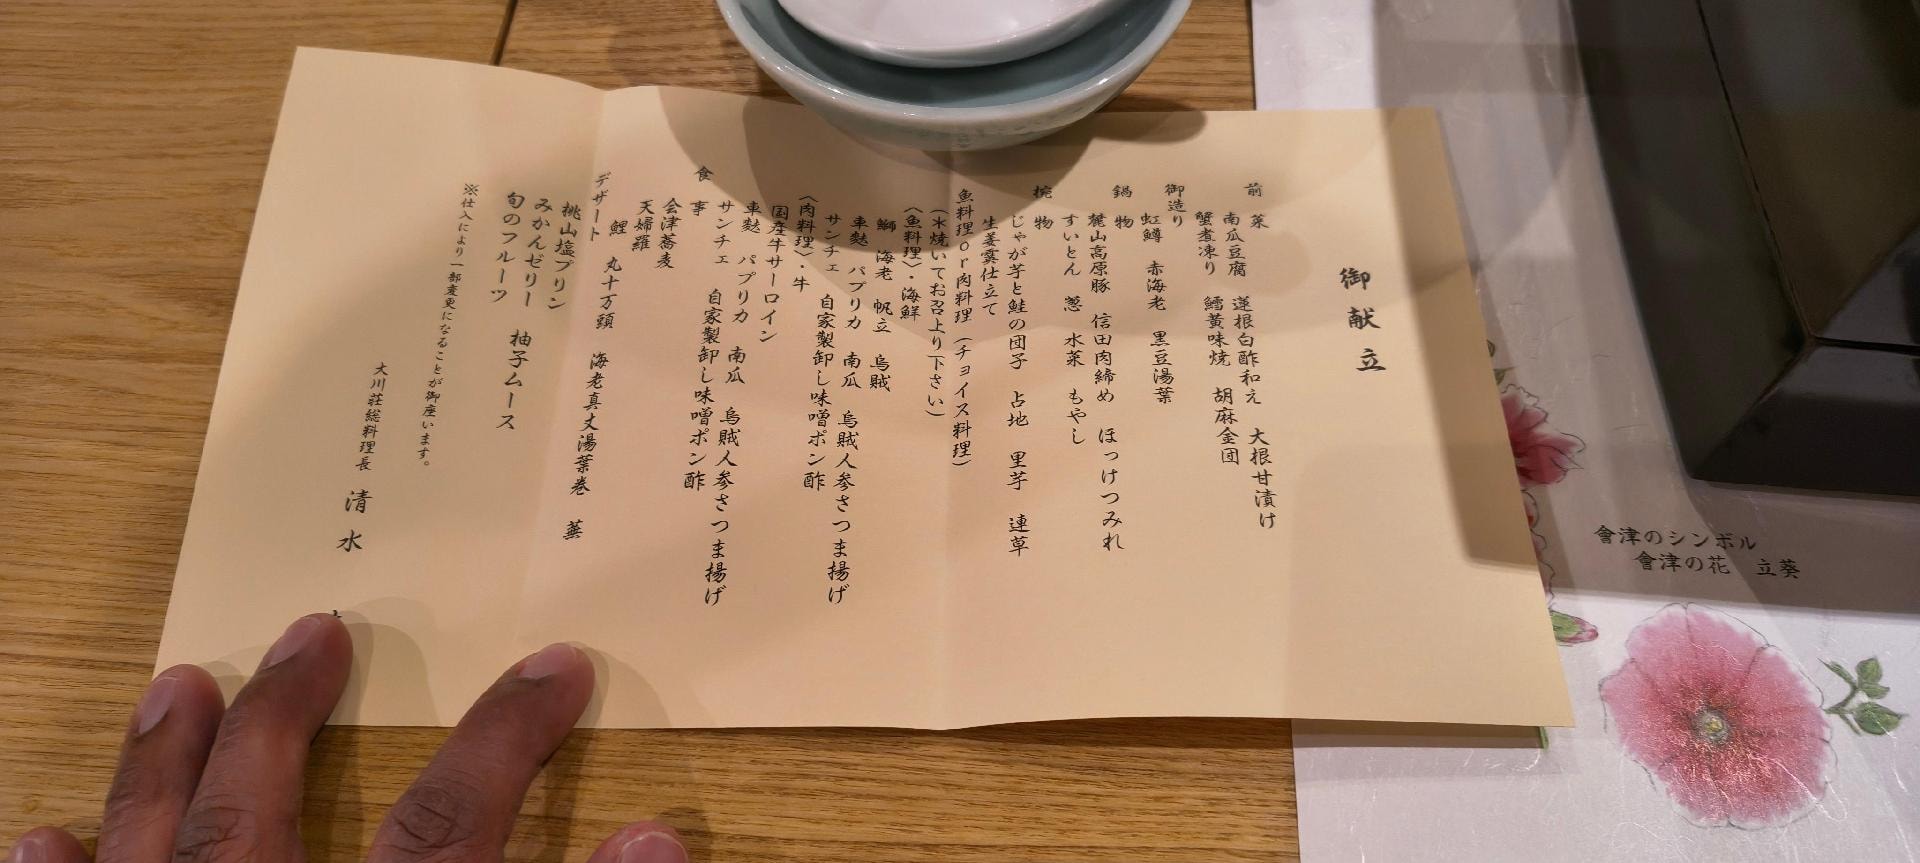 御献立
前菜
南瓜豆腐　蓮根白酢和え　大根甘漬け
蟹煮凍り　鱈黄味焼　胡麻金団
御造り
虹鱒　赤海老　黒豆湯葉
鍋物
麓山高原豚　信田肉締め　ほっけつみれ
すいとん　葱　水菜　もやし
椀物
じゃが芋と鮭の団子　占地　里芋　連草
生姜霙仕立て
魚料理or肉料理（チョイス料理）
（木焼いてお召上り下さい）
〈魚料理〉・海鮮
鰤　海老　帆立　烏賊
車麩　パプリカ　南瓜　烏賊人参さつま揚げ
サンチェ　自家製卸し味噌ポン酢
〈肉料理〉・牛
国産牛サーロイン
車麩　パプリカ　南瓜　烏賊人参さつま揚げ
サンチェ　自家製卸し味噌ポン酢
食事
会津蕎麦
天婦羅
鯉　丸十万頭　海老真丈湯葉巻　蕪
デザート
桃山塩プリン
みかんゼリー　柚子ムース
旬のフルーツ
※仕入により一部変更になることが御座います。
大川荘総料理長　清水
會津のシンボル
會津の花　立葵